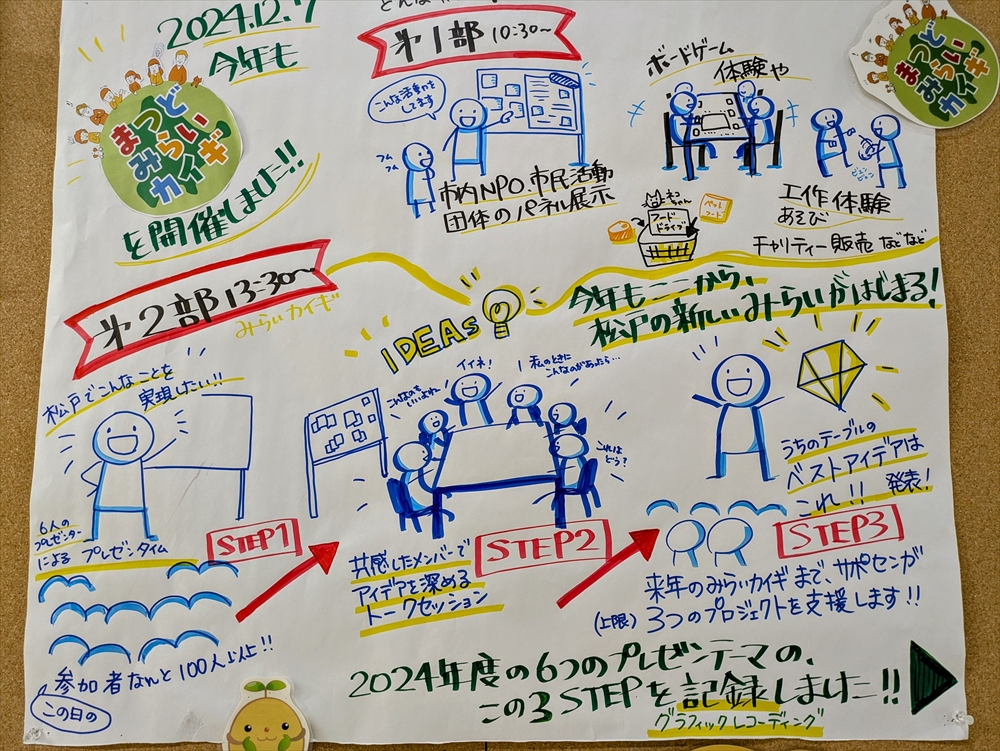 2024.12.7
今年も
まつど
みらい
カイギ
を開催しました!!
第1部 10:30〜
こんな活動を
してます
フム
フム
市内NPO、市民活動
団体のパネル展示
ボードゲーム
体験や
ネコ
ちゃん
フード
ドライブ
ペット
フード
工作体験
あそび
チャリティー販売 などなど
まつど
みらい
カイギ
第2部 13:30〜
みらいカイギ
IDEAs
今年もここから、
松戸の新しいみらいがはじまる!
松戸でこんなことを
実現したい!!
6人の
プレゼンターによる プレゼンタイム
STEP1
参加者なんと100人以上!!
この日の
こんなのも
いいよねー
イイネ!
私のときに
こんなのがあったら…
これは
どう?
共感したメンバーで
アイデアを深める
トークセッション
STEP2
うちのテーブルの
ベストアイデアは
これ!! 発表!
STEP3
来年のみらいカイギまで、サポセンが
(上限) 3つのプロジェクトを支援します!!
2024年度の6つのプレゼンテーマの、
この3STEPを記録しました!!
グラフィックレコーディング